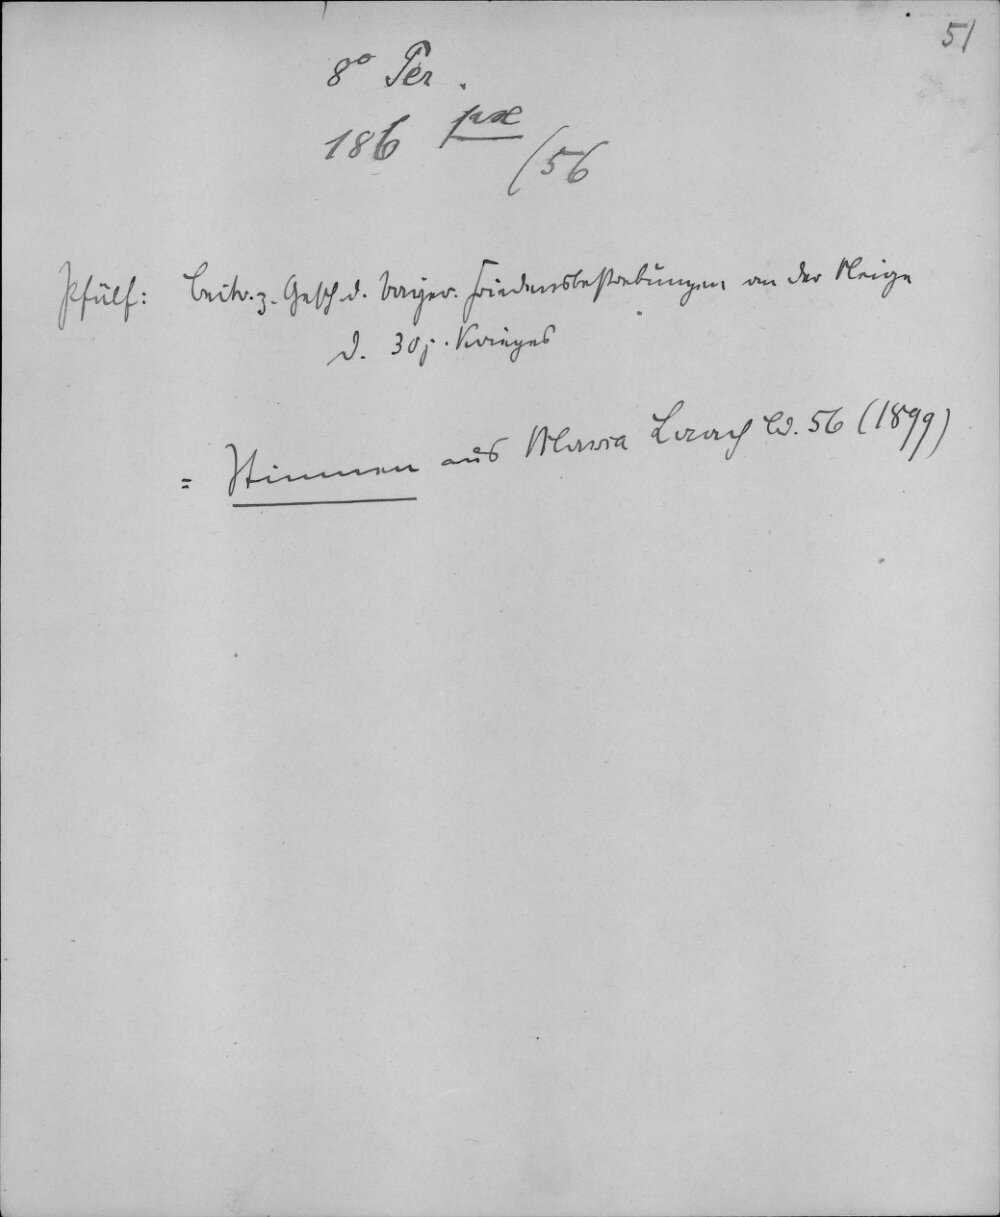 51
8° Per.
186 px
(56
Pfülf: Beitr. z. Gesch d. bayer. Friedensbestrebungen an der Neige
d. 30j. Krieges
= Stimmen aus Maria Laach Bd. 56 (1899)